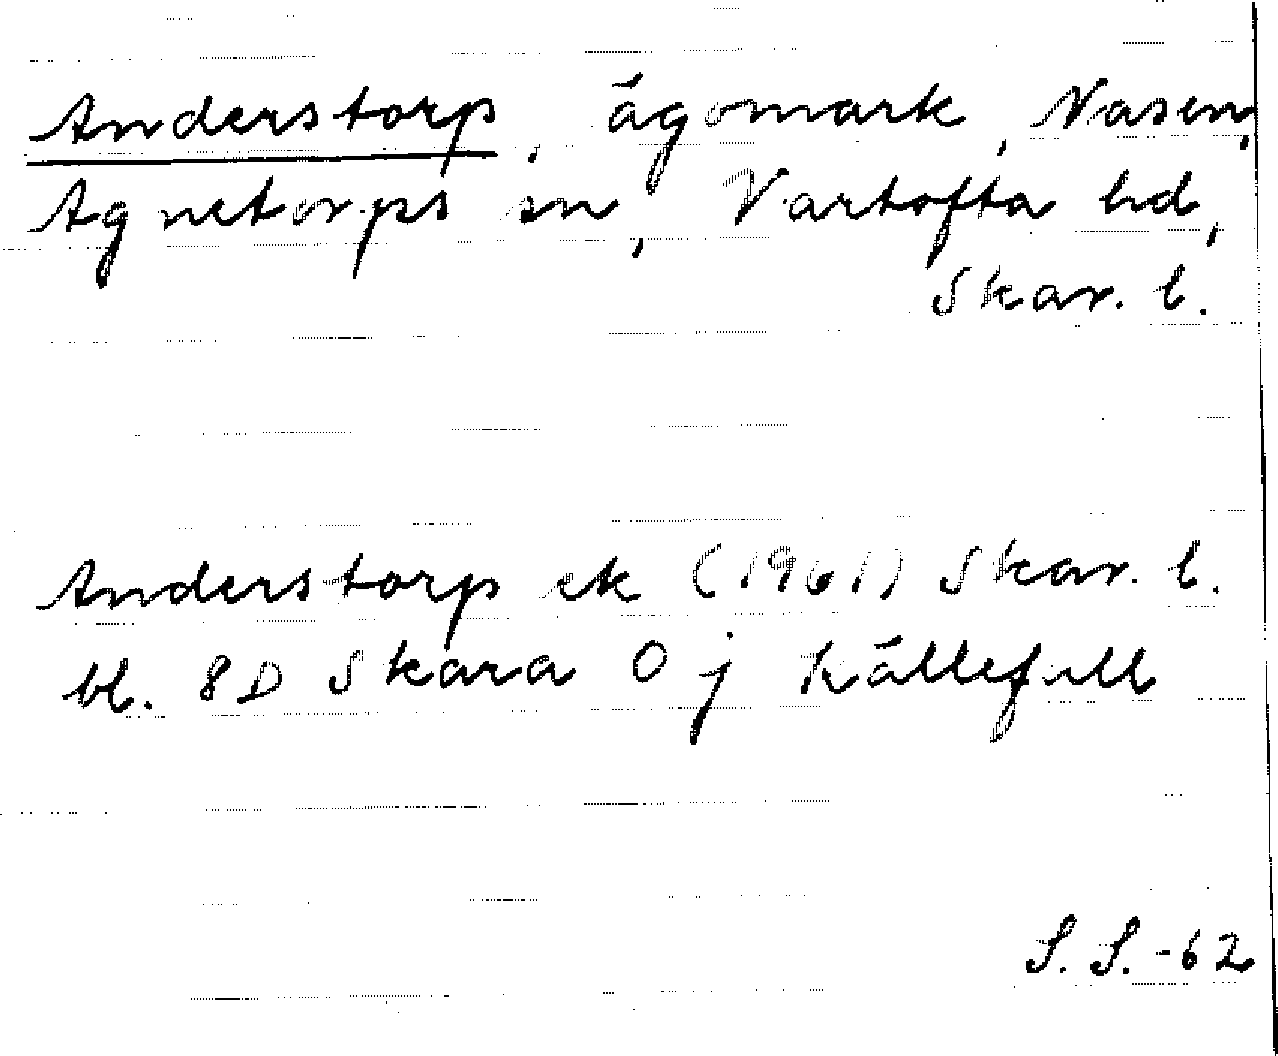 Anderstorp, ägomark, Nasen,
Agnetorps sn, Vartofta hd,
Skar. l.
Anderstorp ek (1961) Skar. l.
bl. 8D Skara 0 j Källefall
S. S. -62